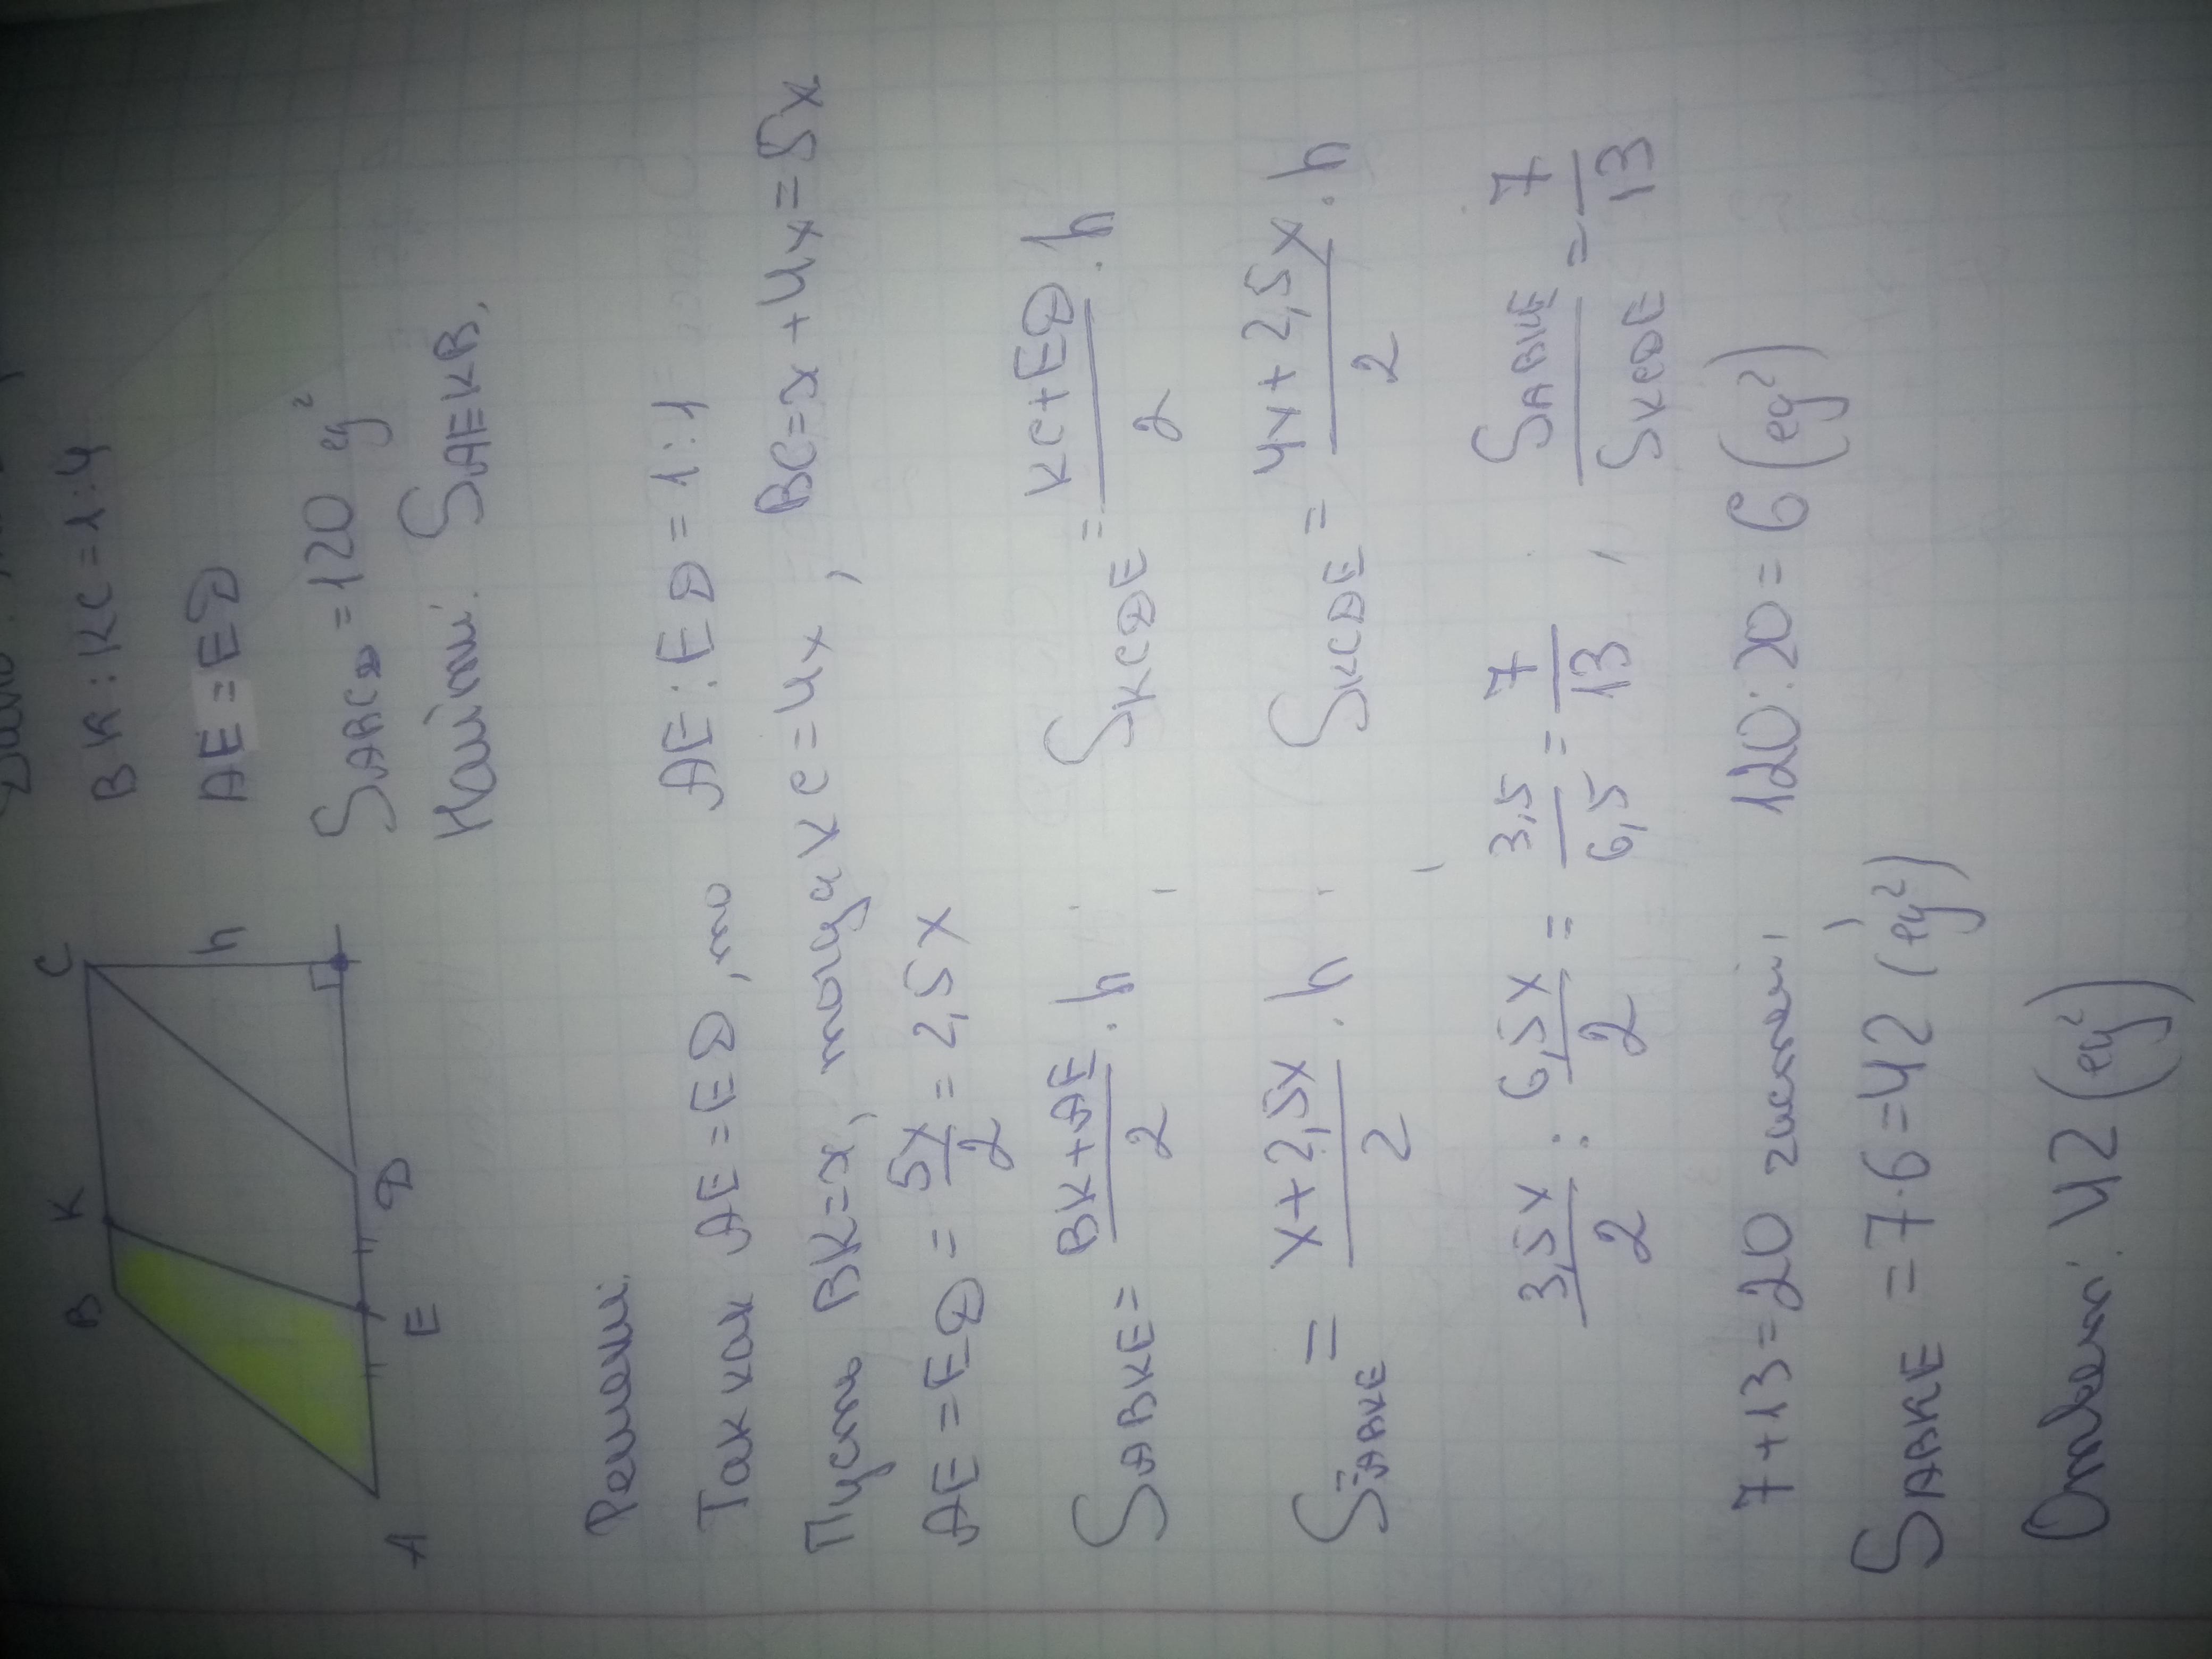 BK:KC=1:4
B K C
h
AE=ED
A E D
SABCD=120 eg²
Найти: SAEKB.
Решени:
Так как AE=ED, то AE:ED=1:1
Пусть BK=x, тогда KC=4x, BC=x+4x=5x
AE=ED=5x/2=2,5x
SABKE=BK+AE/2·h, SKCDE=KC+ED/2·h
SABKE=x+2,5x/2·h, SKCDE=4x+2,5x/2·h
3,5x/2:6,5x/2=3,5/6,5=7/13, SABKE/SKCDE=7/13
7+13=20 частей, 120:20=6(eg²)
SABKE=7·6=42(eg²)
Ответ: 42(eg²)